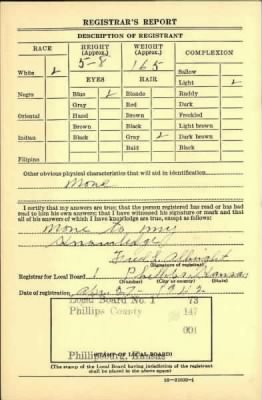 REGISTRAR'S REPORT
DESCRIPTION OF REGISTRANT
RACE HEIGHT (Approx.) WEIGHT (Approx.) COMPLEXION
5-8 165
White ✓ Sallow
EYES HAIR Light ✓
Negro Blue ✓ Blonde Ruddy
Gray Red Dark
Oriental Hazel Brown Freckled
Brown Black Light brown
Indian Black Gray ✓ Dark brown
Bald Black
Filipino
Other obvious physical characteristics that will aid in identification
None
I certify that my answers are true; that the person registered has read or has had
read to him his own answers; that I have witnessed his signature or mark and that
all of his answers of which I have knowledge are true, except as follows:
None to my
Knowledge
Albright
(Signature of registrar)
Registrar for Local Board 1 Phillips Kansas
(Number) (City or county) (State)
Date of registration Apr 27 - 1942
Local Board No. 1 73
Phillips County 147
001
Phillipsburg, Kansas
(STAMP OF LOCAL BOARD)
(The stamp of the Local Board having jurisdiction of the registrant
shall be placed in the above space)